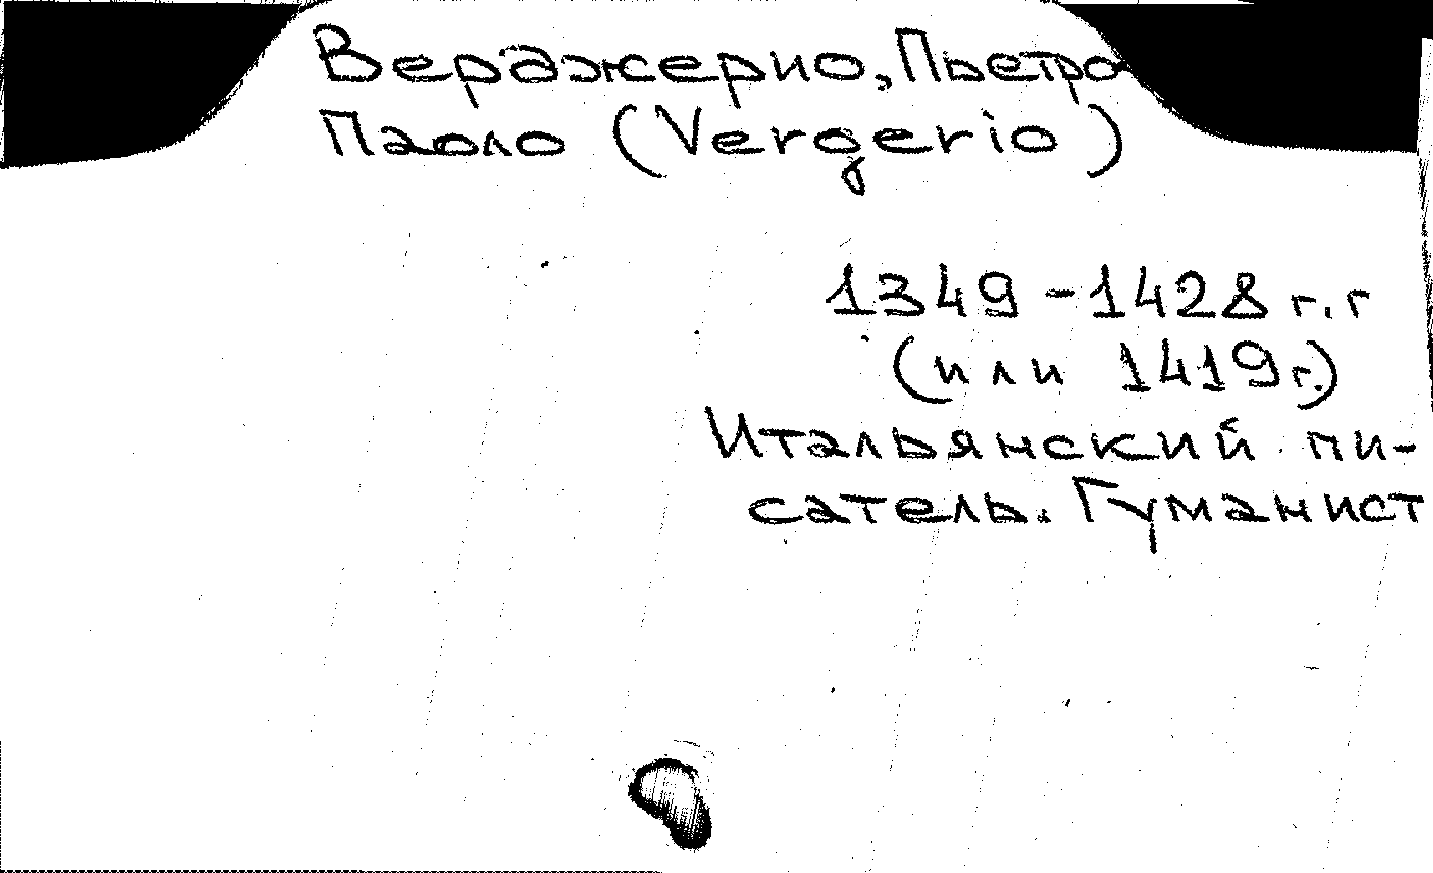 Верджерио, Пьетро
Паоло (Vergerio)
1349-1428 г.г
(или 1419г.)
Итальянский пи-
сатель. Гуманист